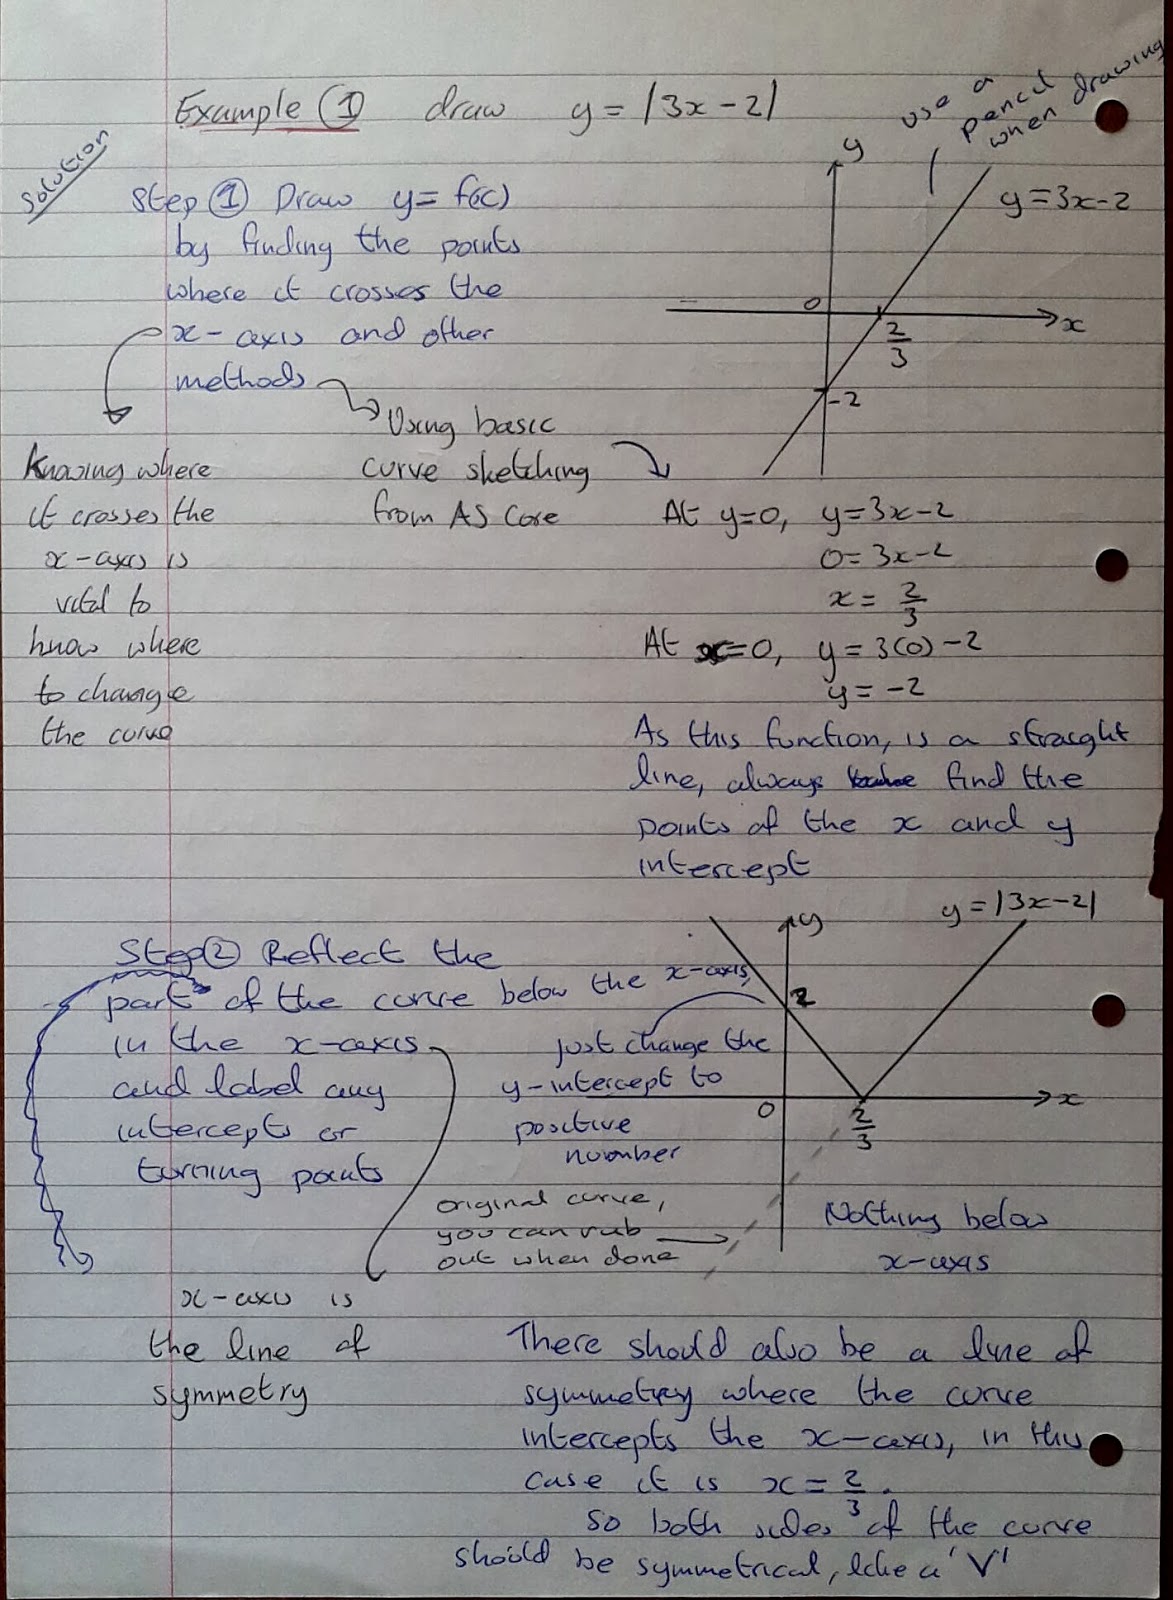 Example ① draw y = |3x-2|
use a
pencil
when drawing
Solution
Step ① Draw y = f(x)
by finding the points
where it crosses the
x-axis and other
methods
y
y=3x-2
0
x
2/3
-2
Using basic
curve sketching
from AS Core
Knowing where
it crosses the
x-axis is
vital to
know where
to change
the curve
At y=0, y=3x-2
0=3x-2
x = 2/3
At x=0, y=3(0)-2
y = -2
As this function, is a straight
line, always find the
points of the x and y
intercept
Step ② Reflect the
part of the curve below the x-axis,
in the x-axis
and label any
intercepts or
turning points
y
y=|3x-2|
2
0
x
2/3
just change the
y-intercept to
positive
number
original curve,
you can rub
out when done
Nothing below
x-axis
x-axis is
the line of
symmetry
There should also be a line of
symmetry where the curve
intercepts the x-axis, in this
case it is x = 2/3.
So both sides of the curve
should be symmetrical, like a 'V'